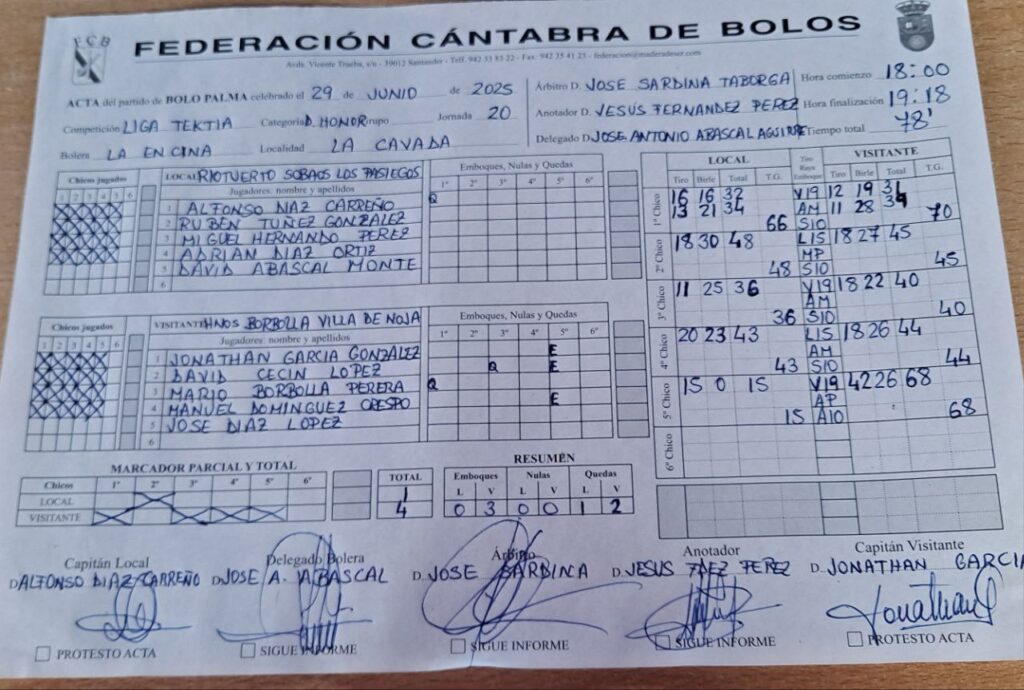 FCB
FEDERACIÓN CÁNTABRA DE BOLOS
Avda. Vicente Trueba, s/n - 39012 Santander - Telf. 942 33 83 22 - Fax. 942 35 41 25 - federacion@maderadeser.com
ACTA del partido de BOLO PALMA celebrado el 29 de JUNIO de 2025
Competición LIGA TEKTIA Categoría D. HONOR Grupo Jornada 20
Bolera LA ENCINA Localidad LA CAVADA
Árbitro D. JOSE SARDINA TABORGA
Anotador D. JESÚS FERNANDEZ PEREZ
Delegado D. JOSE ANTONIO ABASCAL AGUIRRE
Hora comienzo 18:00
Hora finalización 19:18
Tiempo total 78'
Chicos jugados
1 2 3 4 5 6
LOCAL RIOTUERTO SOBAOS LOS PASIEGOS
Jugadores: nombre y apellidos
1 ALFONSO DIAZ CARREÑO
2 RUBEN TUÑEZ GONZALEZ
3 MIGUEL HERNANDO PEREZ
4 ADRIAN DIAZ ORTIZ
5 DAVID ABASCAL MONTE
6
Emboques, Nulas y Quedas
1º 2º 3º 4º 5º 6º
Q
Chicos jugados
1 2 3 4 5 6
VISITANTE HNOS BORBOLLA VILLA DE NOJA
Jugadores: nombre y apellidos
1 JONATHAN GARCIA GONZALEZ
2 DAVID CECIN LOPEZ
3 MARIO BORBOLLA PERERA
4 MANUEL DOMINGUEZ OBESPO
5 JOSE DIAZ LOPEZ
6
Emboques, Nulas y Quedas
1º 2º 3º 4º 5º 6º
E
Q E
Q
E
LOCAL VISITANTE
Tiro Birle Total T.G. Tiro Raya Emboque Tiro Birle Total T.G.
1º Chico
16 16 32 V19 12 19 31
13 21 34 AM 11 28 39
66 S10 70
2º Chico
18 30 48 LIS 18 27 45
MP
48 S10 45
3º Chico
11 25 36 V19 18 22 40
AM
36 S10 40
4º Chico
20 23 43 LIS 18 26 44
AM
43 S10 44
5º Chico
15 0 15 V19 42 26 68
AP
15 A10 68
6º Chico
MARCADOR PARCIAL Y TOTAL
Chicos 1º 2º 3º 4º 5º 6º TOTAL
LOCAL 1
VISITANTE 4
RESUMÉN
Emboques Nulas Quedas
L V L V L V
0 3 0 0 1 2
Capitán Local
D. ALFONSO DIAZ CARREÑO
PROTESTO ACTA
Delegado Bolera
D. JOSE A. ABASCAL
SIGUE INFORME
Árbitro
D. JOSE SARDINA
SIGUE INFORME
Anotador
D. JESUS FDEZ PEREZ
SIGUE INFORME
Capitán Visitante
D. JONATHAN GARCIA
Jonathan G
PROTESTO ACTA